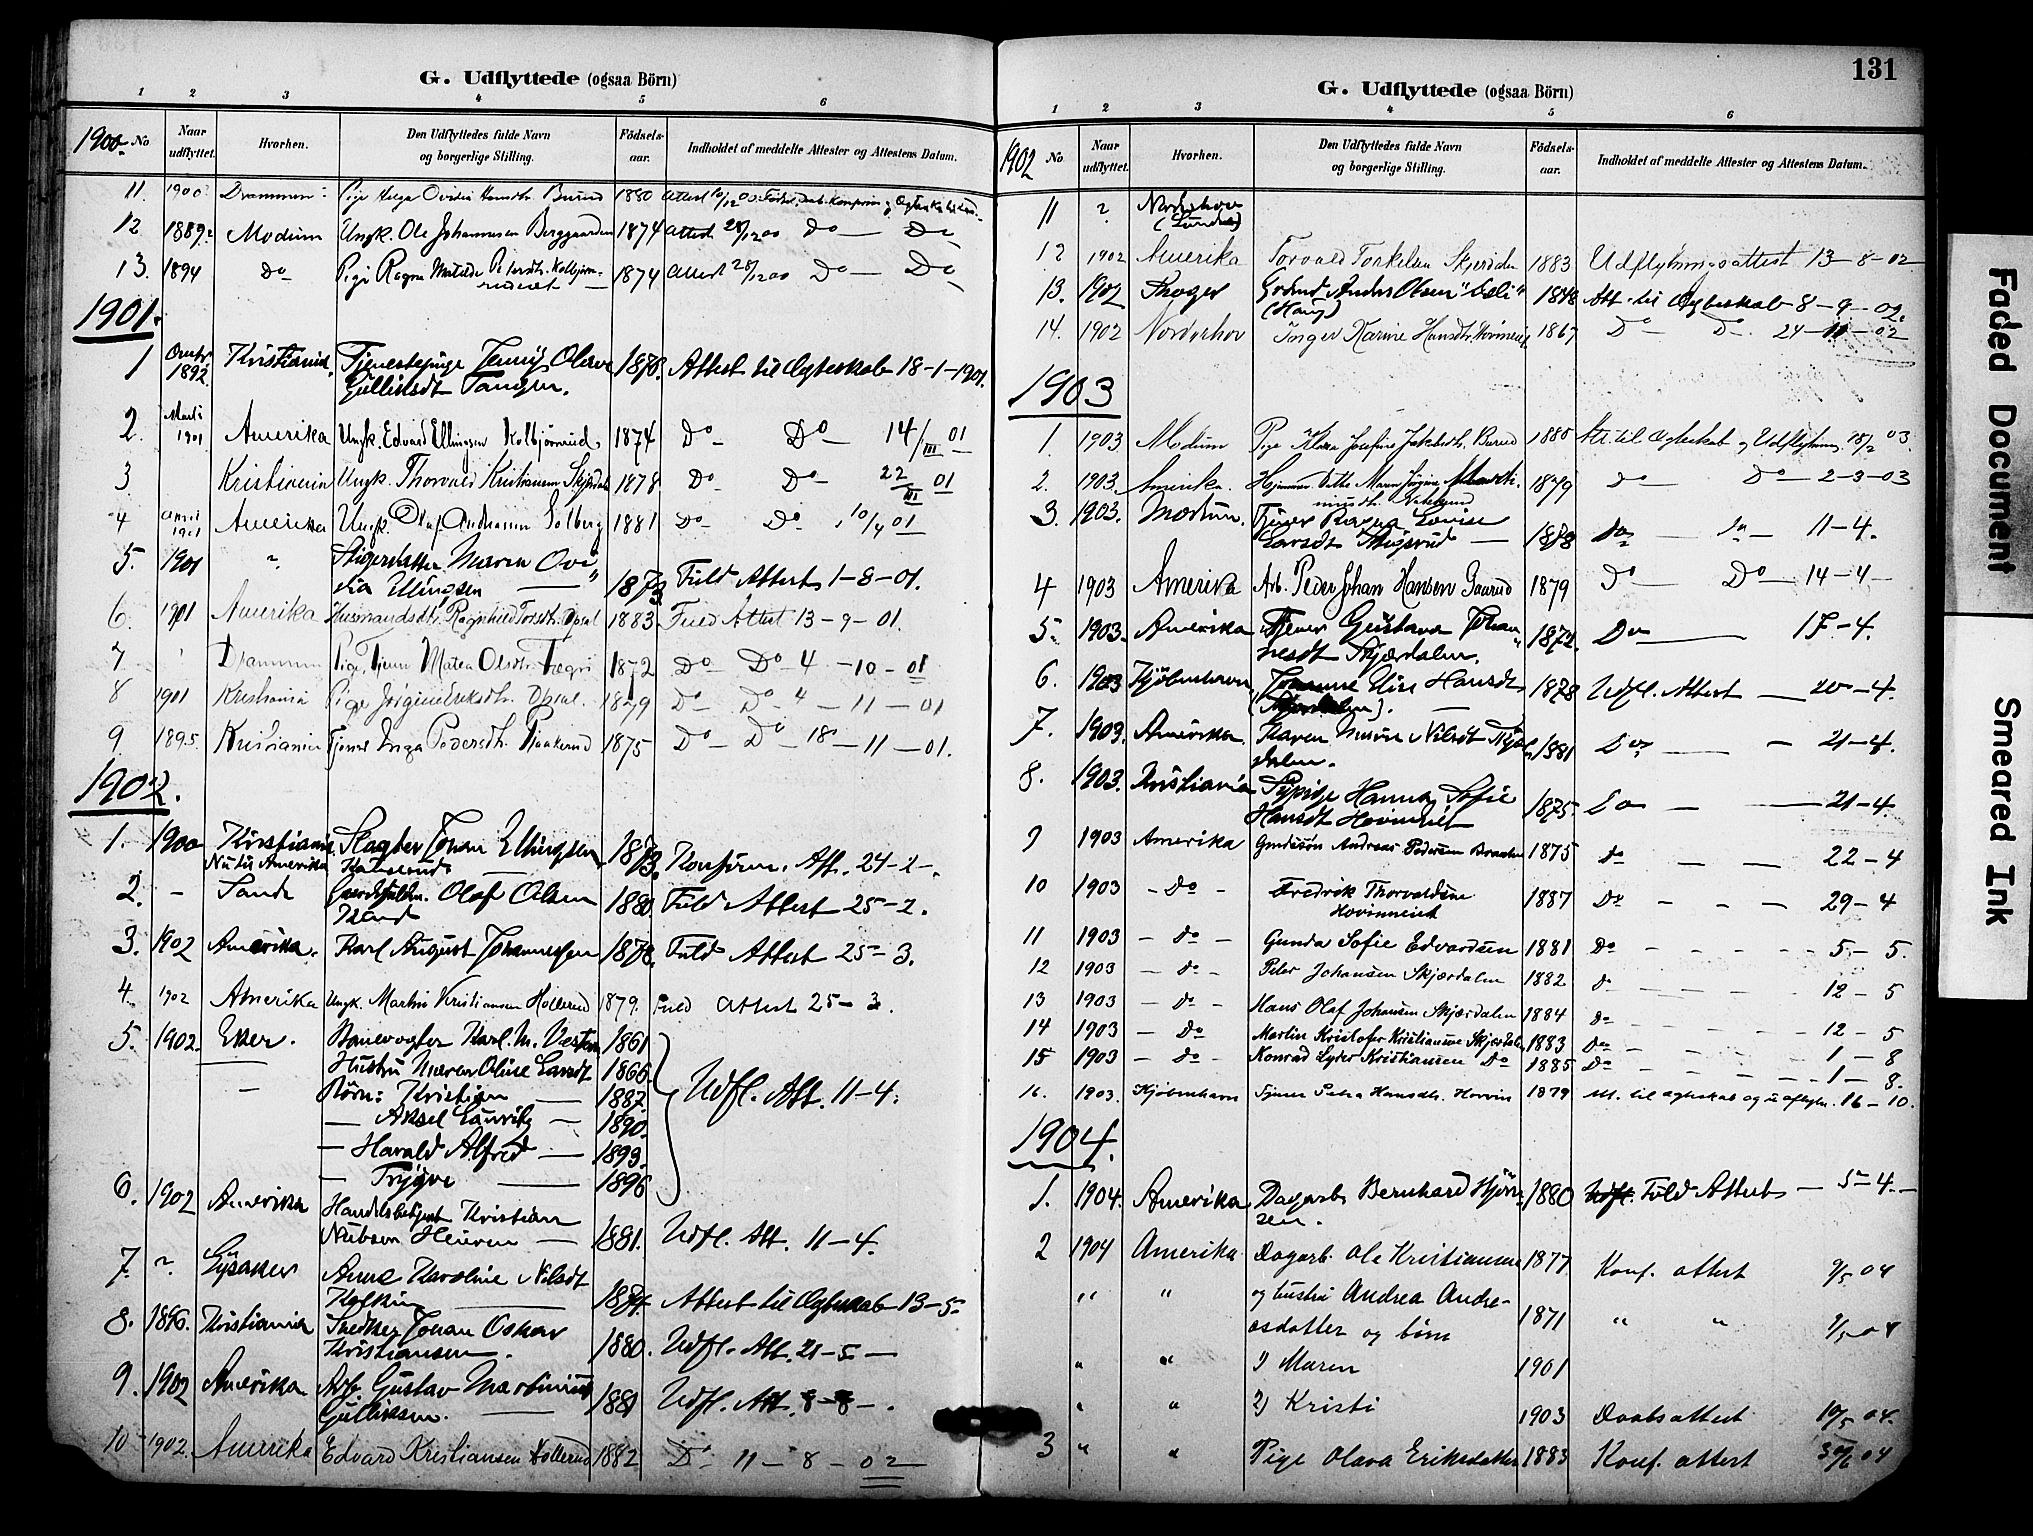 G. Udflyttede (ogsaa Börn)
1 2 3 4 5 6
1900. No Naar udflyttet. Hvorhen. Den Udflyttedes fulde Navn og borgerlige Stilling. Födsels-aar. Indholdet af meddelte Attester og Attestens Datum.
11. 1900 Drammen Pige Helga Burud 1880 Attest
12 1889 Modum Ungk. Ole Johannesen Berggaarden 1874 Attest 28/12 00 Do — Do
13. 1894 Do Pige Ragna Matilde Pedersdtr. Kolbjørn- 1874 Attest 28/12 00 Do — Do
1901.
1 1892 Kristiania. Tjenestepige Jenny Olave 1876. Attest til Ægteskab 18-1-1901.
Gulliksdt Tangen.
2. Marts 1901 Amerika Ungk. Edvard Ellingsen Kolbjörnrud. 1874 Do — Do — 14/III 01
3 Kristiania Ungk. Thorvald Kristiansen Skjerdal 1878 Do — Do — 22/III 01
4 April 1901 Amerika Ungk. Olaf Andreassen Solberg 1881 Do — Do. 10/4 01
5. 1901 " Maren Ovi-
dia Ellingsen — 1873 Fuld Attest 1-8-01.
6. 1901 Amerika Husmandsdtr. Ragnhild Torsdtr. Opsal 1883 Fuld Attest 13-9-01.
7 Drammen Pige Tjen. Matea Olsdtr. 1872 Do Do 4-10-01
8 1901 Kristiania Pige Jörgine Eriksdtr. Opsal. 1879 Do Do 4-11-01
9 1895. Kristiania Tjener Inga Pedersdtr. 1875 Do — Do — 18-11-01.
1902.
1. 1900 Kristiania Slagter Johan Ellingsen 1873. Konfirm. Att. 24-2-.
Nu til Amerika
2. - Sande Olaf Olsen 1880 Fuld Attest 25-2.
3. 1902 Amerika. Karl August Johannessen 1878. Fuld Attest 25-3.
4. 1902 Amerika Ungk. Martin Kristiansen Hollerud 1879. Fuld Attest 25-3.
5. 1902. Eker. Banevogter Karl M. 1861
Hustru Maren Oline Larsdt 1866.
Börn: Kristian — 1887. Udfl. Att. 11-4.
— Aksel Lauritz — 1890.
— Harald Alfred — 1893.
— Trygve — 1896
6. 1902 Amerika Handelsbetjent Kristian
— 1881. Udfl. Att. 11-4.
7. ? Lysaker Anne Karoline Nilsdt
— Attest til Ægteskab 13-5-
8. 1896. Kristiania Snedker Johan Oskar
Kristiansen. 1880. Udfl. Att. 21-5 —
9. 1902 Amerika Arb. Gustav Martinius
Gulliksen. — 1881 Udfl. Att. 8-8-.
10 1902. Amerika Edvard Kristiansen Hollerud 1882 Do 11-8-02
131
G. Udflyttede (ogsaa Börn)
1 2 3 4 5 6
1902 No Naar udflyttet. Hvorhen. Den Udflyttedes fulde Navn og borgerlige Stilling. Födsels-aar. Indholdet af meddelte Attester og Attestens Datum.
11 ? Norderhov
12 1902 Amerika Torvald Torkelsen Skjerdalen 1883 Udflytningsattest 13-8-02
13. 1902 Skoger Anders Olsen 1848 Att. til Ægteskab 8-9-02.
(Haug)
14. 1902 Norderhov Inger Karine Hansdtr. 1867 Do — Do. 24-11-02
1903
1. 1903. Modum Pige Klara Josefine Jakobsdtr. Burud 1880 Att. til Ægteskab og Udflytning 18/2 03.
2. 1903. Amerika. 1879 Do Do — 2-3-03
3. 1903. Modum. Tjener Ragna Lovise
Larsdt — 1878 Do — Do — 11-4.
4 1903 Amerika Arb. Peder Johan Hansen Gaarud 1879 Do — Do — 14-4-
5. 1903. Amerika Tjener Gustava Johan-
nesdt Skjærdalen. 1872. Do — 15-4.
6. 1903 Kjöbenhavn Elise Hansdt 1878 Udfl. Attest — 20-4.
(Skjærdalen). —
7. 1903. Amerika. Karen Marie Nilsdt Skjær-
dalen. 1881 Do — — 21-4.
8. 1903. Kristiania Sypige Hanna Sofie
Hansdt Hovinneiet 1875. Do — — 21-4.
9 1903 Amerika Andreas Pedersen Braaten 1875 Do — — 22-4
10 1903 - Do - Fredrik Thorvaldsen
Hovinneiet 1887 Do — — — 29-4
11 1903 - Do - Gunda Sofie Edvardsen 1881 Do — — — — 5-5.
12 1903 - Do - Peter Johansen Skjærdalen 1882 Do — — — — 12-5
13 1903 - Do - Hans Olaf Johansen Skjærdalen 1884 Do — — — —
14 1903 - Do Martin Kristofer Kristiansen Skjærdalen 1883 Do — 12-5
15 1903 - Do - Konrad Lyder Kristiansen Do 1885 Do — 1-8
— — — — 1-8.
16. 1903. Kjöbenhavn Tjener Petra Hansdtr. Hovin 1879 Att. til Ægteskab og Udflytn. 16-10.
1904.
1. 1904. Amerika Dagarb. Bernhard 1880 Fuld Attest — 5-4-
sen.
2 1904 Amerika Dagarb. Ole Kristiansen 1877 Konf. attest 9/5 04
" " og hustru Andrea Andre-
asdatter og börn 1871 " "
" " 1) Maren 1901
" " 2) Kristi 1903 Daabsattest 10/5 04.
3 " " Pige Olava Eriksdatter 1883 Konf. attest 30/6 04
Faded Document
Smeared Ink